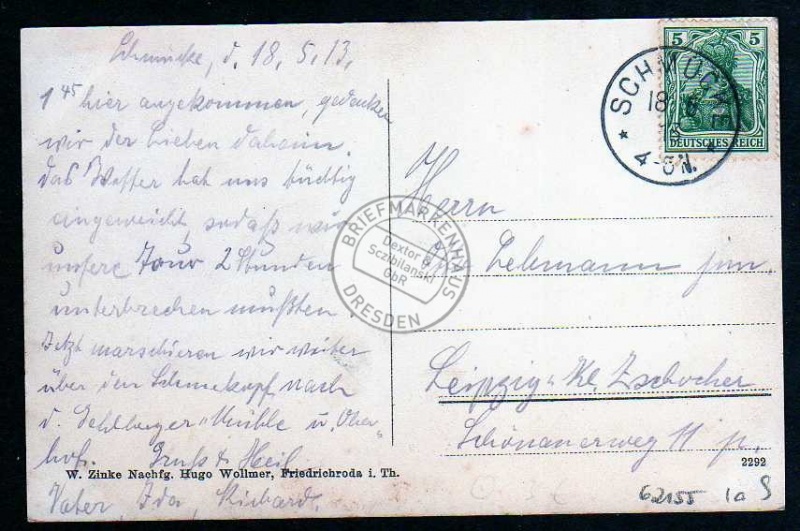 Schmücke, d. 18.5.13.
1 45 hier angekommen, gedenken
wir der Lieben daheim.
Das Wetter hat uns tüchtig
eingeweicht, sodaß wir
unsere Tour 2 Stunden
unterbrechen mußten.
Jetzt marschieren wir weiter
über den Schneekopf nach
d. Mühle u. Ober-
hof. Gruß & Heil
Vater, Ida, Richard.
W. Zinke Nachfg. Hugo Wollmer, Friedrichroda i. Th.
5 5
DEUTSCHES REICH
SCHMÜCKE
18 5
4-5 N.
Herrn
Lehmann jun.
Leipzig-Kl. Zschocher
Schönauerweg 11 p.
2292
62155 10 S
BRIEFMARKENHAUS
Dextor &
Sczibilanski
GbR
DRESDEN